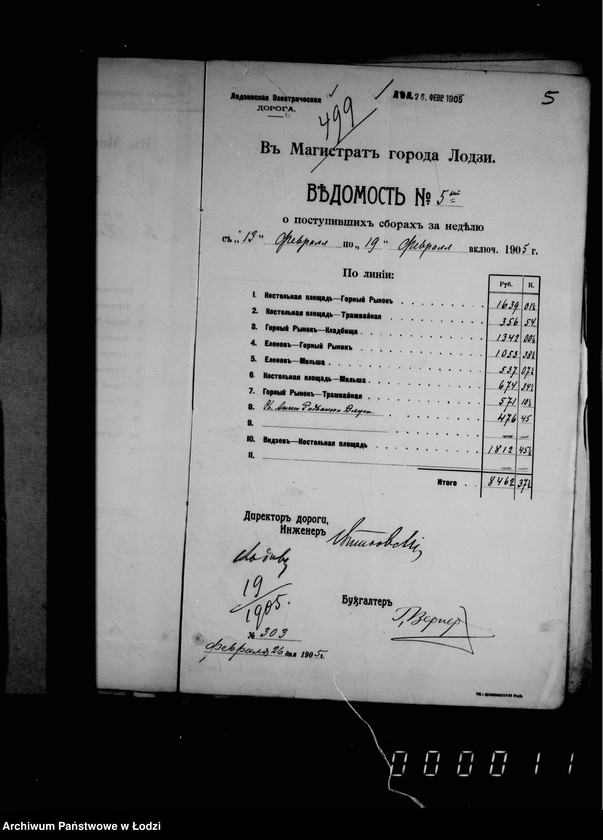 Лодзинская Электрическая
ДОРОГА.
499
26. ФЕВР 1905
5
Въ Магистратъ города Лодзи.
ВѢДОМОСТЬ № 5
о поступившихъ сборахъ за недѣлю
съ „13" Февраля по „19" Февраля включ. 1905 г.
По линіи:
Руб. К.
1. Костельная площадь—Горный Рынокъ 1639 01½
2. Костельная площадь—Трамвайная 356 54
3. Горный Рынокъ—Кладбища 1342 00½
4. Еленовъ—Горный Рынокъ 1053 38½
5. Еленовъ—Мильша 537 07½
6. Костельная площадь—Мильша 674 34½
7. Горный Рынокъ—Трамвайная 571 10½
8. 476 45
9. —
10. Видзевъ—Костельная площадь 1812 45½
11. —
Итого 8462 37½
Директоръ дороги,
Инженеръ
19
1905.
Бухгалтеръ
Г. Вернеръ
№ 303
Февраля 26 дня 1905 г.
0000011
Archiwum Państwowe w Łodzi